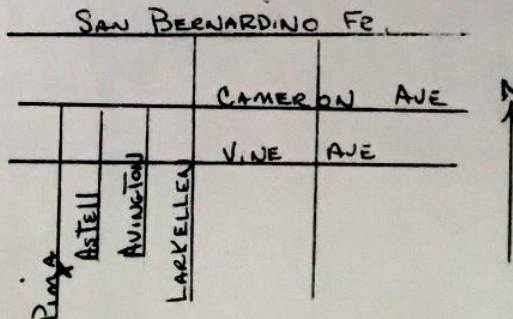 SAN BERNARDINO Fe.
CAMERON AVE
N
VINE AVE
PIMA
ASTELL
AVINGTON
LARKELLEN